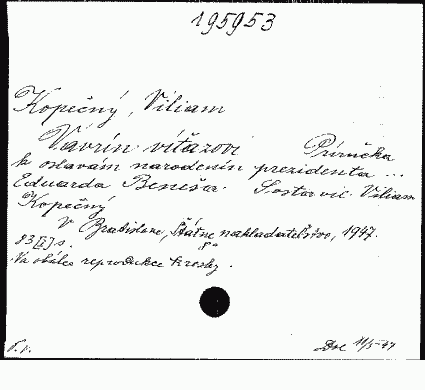 195953
Kopečný, Viliam
Vavrín víťazovi Príručka
k oslavám narodenín prezidenta ...
Eduarda Beneša. Sostavil Viliam
Kopečný
V Bratislave, Štátne nakladateľstvo, 1947.
83 [I] s. 8°
Na obálce reprodukce kresby.
Dor 11/5-47